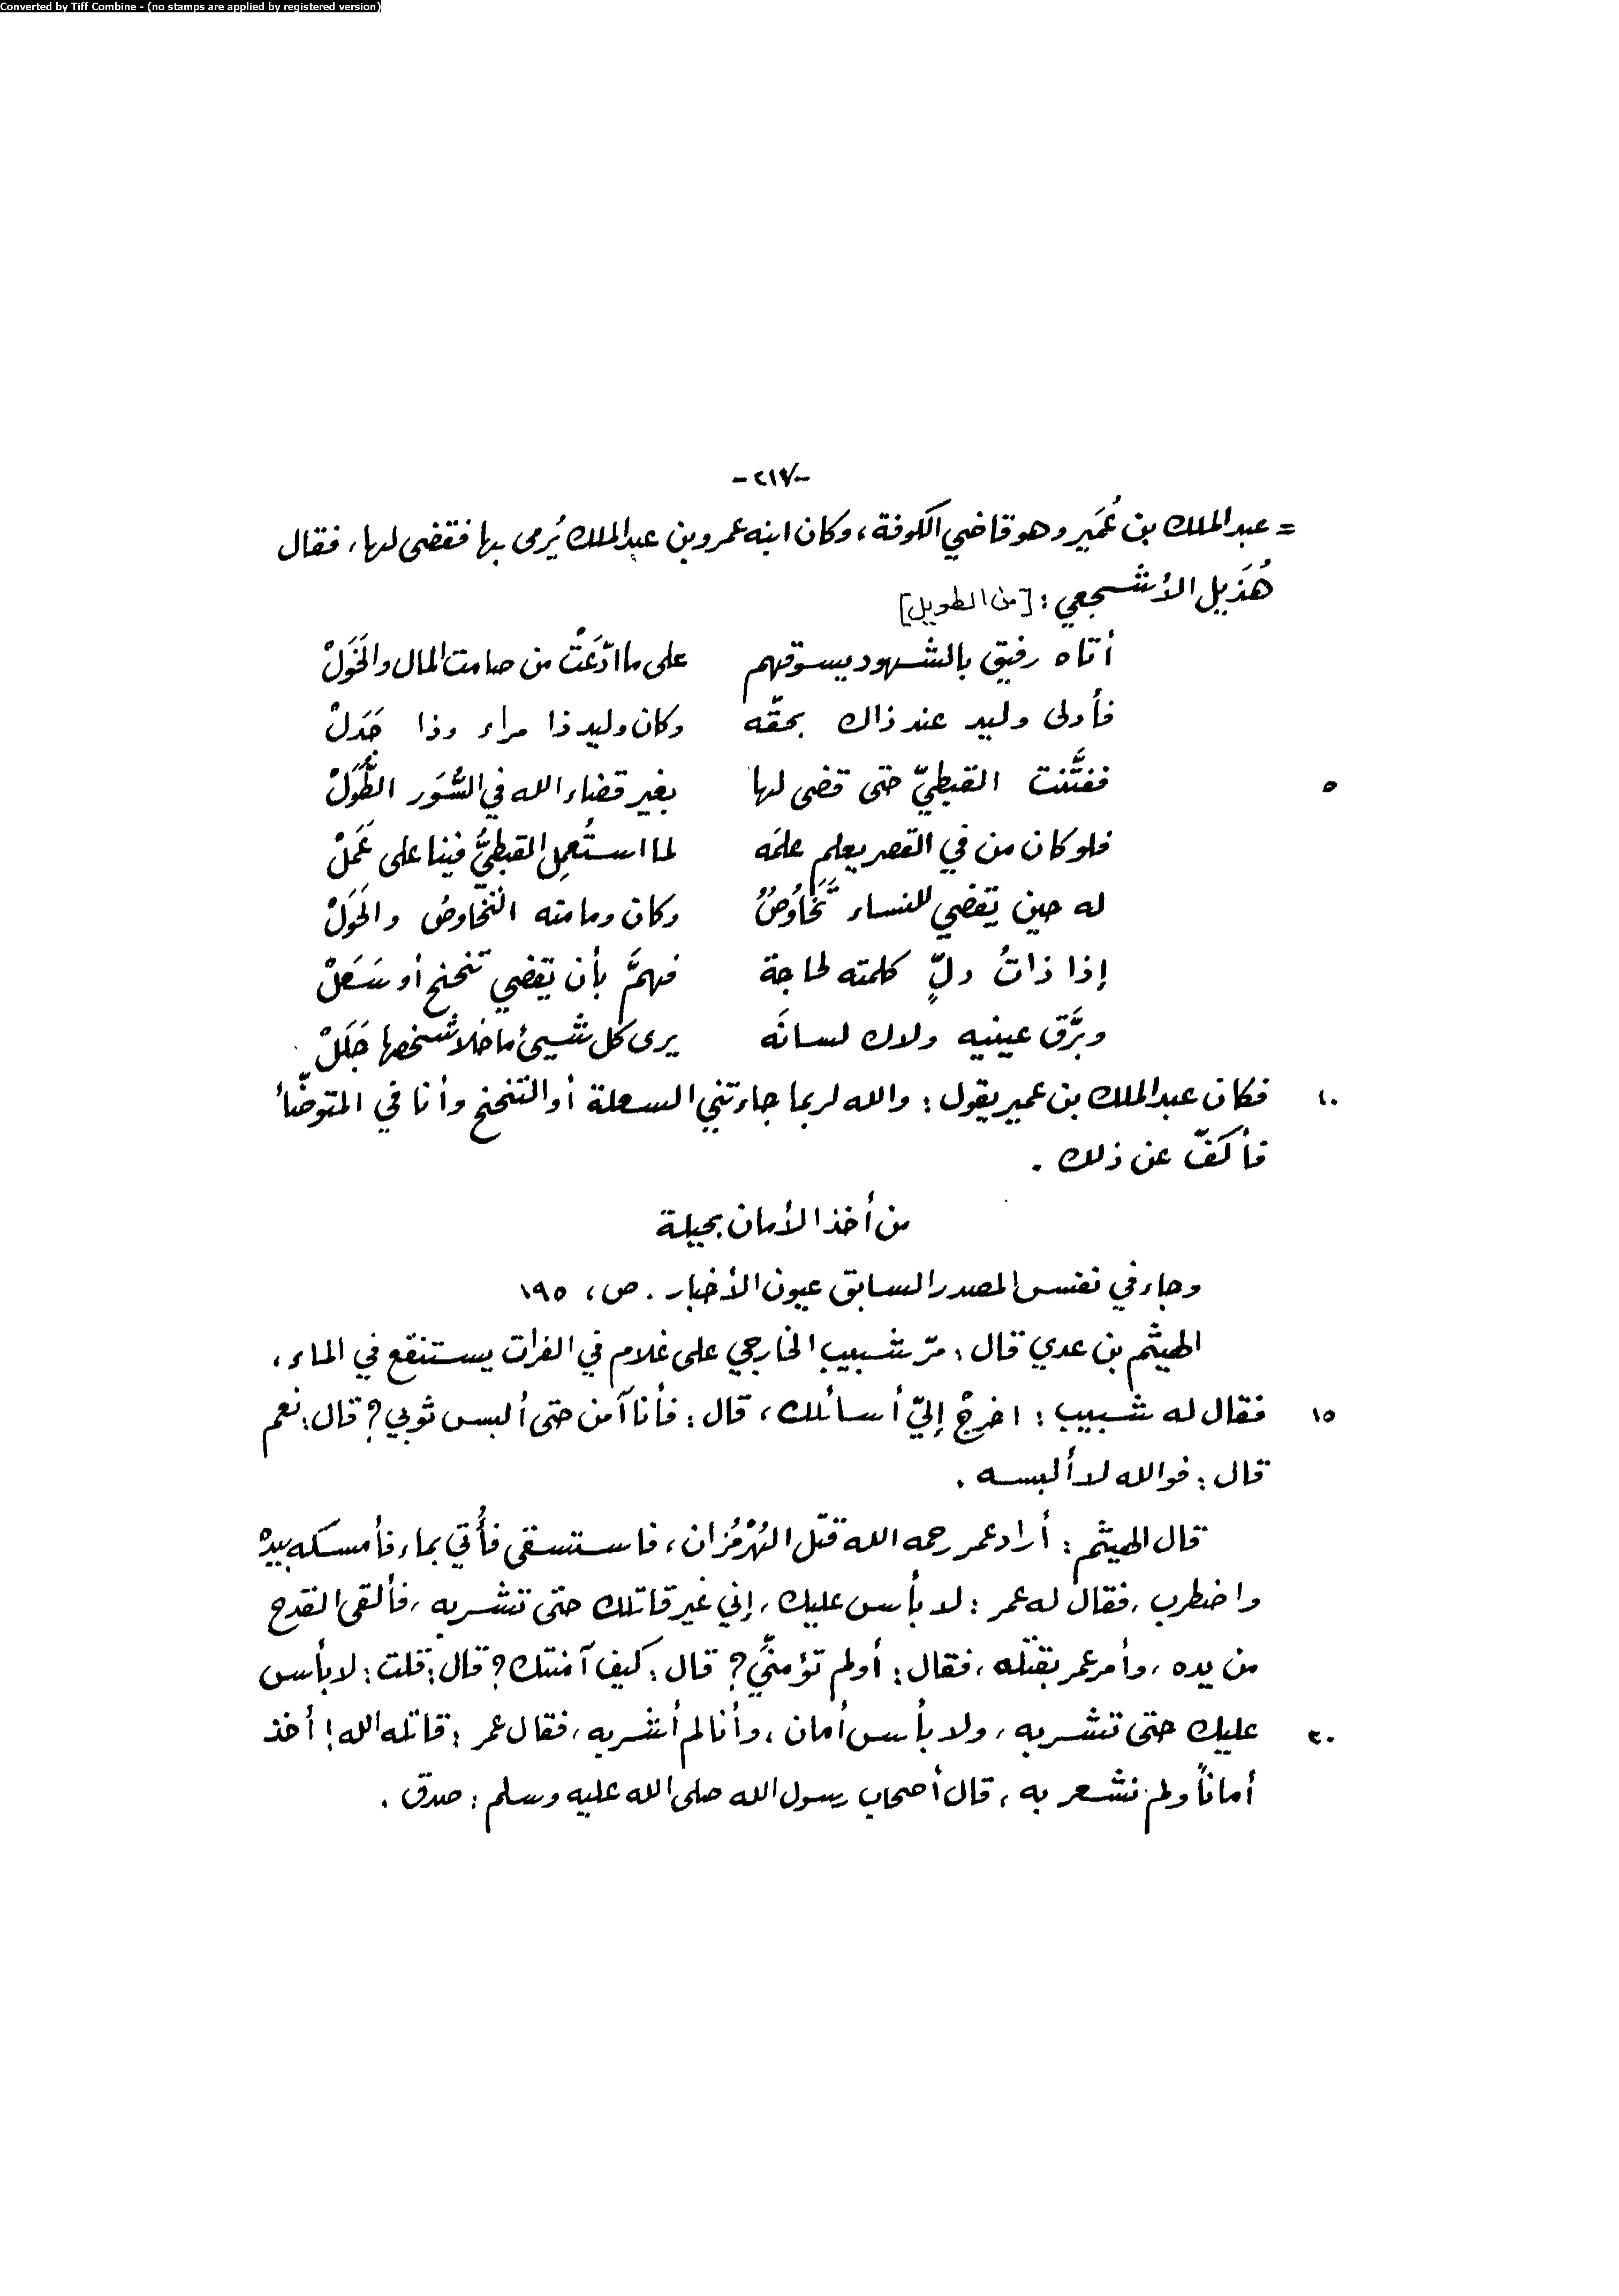 Converted by Tiff Combine - (no stamps are applied by registered version)
-٢١٧-
= عبد الملك بن عُمَير وهو قاضي الكوفة، وكان ابنه عمرو بن عبد الملك يُرمى بها فقضى لها، فقال
هُذَيل الأشجعي: [من الطويل]
أتاه رفيق بالشهود يسوقهم على ما ادّعَتْ من صامت المال والخَوَلْ
فأدلى وليد عند ذاك بحقّه وكان وليد ذا مراء وذا جَدَلْ
٥ ففتَّنت القبطيّ حتى قضى لها بغير قضاء الله في السُّوَر الطُّوَلْ
فلو كان من في القصر يعلم علمَه لما استُعمِل القبطيُّ فينا على عَمَلْ
له حين يقضي للنساء تَّخَاوُصٌ وكان وما منه التّخاوصُ والحَوَلْ
إذا ذاتُ دلٍّ كلمته لحاجة فهمَّ بأن يقضي تنحنح أو سَعَلْ
وبرَّق عينيه ولاك لسانَه يرى كل شيئ ما خلا شخصها جَلَلْ
١٠ فكان عبد الملك بن عمير يقول: والله لربما جاءتني السعلة أو التنحنح وأنا في المتوضّأ
فأكفّ عن ذلك.
من أخذ الأمان بحيلة
وجاء في نفس المصدر السابق عيون الأخبار. ص، ١٩٥
الهيثم بن عدي قال: مرّ شبيب الخارجي على غلام في الفرات يستنقع في الماء،
١٥ فقال له شبيب: اخرجْ إليّ أسائلك، قال: فأنا آمن حتى ألبس ثوبي؟ قال: نعم
قال: فوالله لا ألبسه.
قال الهيثم: أراد عمر رحمه الله قتل الهُرْمُزان، فاستسقى فأُتي بماء فأمسكه بيده
واضطرب، فقال له عمر: لا بأس عليك، إني غير قاتلك حتى تشربه، فألقى القدح
من يده، وأمر عمر بقتله، فقال: أولم تؤمنِّي؟ قال: كيف آمنتك؟ قال: قلت: لا بأس
٢٠ عليك حتى تشربه، ولا بأس أمان، وأنا لم أشربه، فقال عمر: قاتله الله! أخذ
أماناً ولم نشعر به، قال أصحاب رسول الله صلى الله عليه وسلم: صدق.